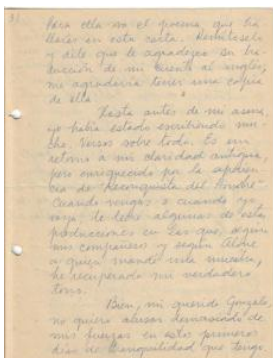 Para ella va el poema que ha
llares en esta carta. Remíteselo
y dile que le agradezco su tra-
ducción de mi cuento al inglés,
me agradaría tener una copia
de ella.
Hasta antes de mi asma,
yo había estado escribiendo mu-
cho. Versos sobre todo. Es un
retorno a mi claridad antigua,
pero enriquecido por la
cia de Reconquista del Hombre.
Cuando vengas o cuando yo
vaya, te leeré algunas de estas
producciones en las que, según
mis compañeros y según Alone
a quien mandé una muestra,
he recuperado mi verdadero
tono.
Bien, mi querido Gonzalo,
no quiero abusar demasiado de
mis fuerzas en estos primeros
días de tranquilidad que tengo.